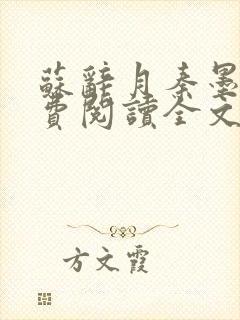 蘇辭月秦墨
費閱讀全文
方文霞